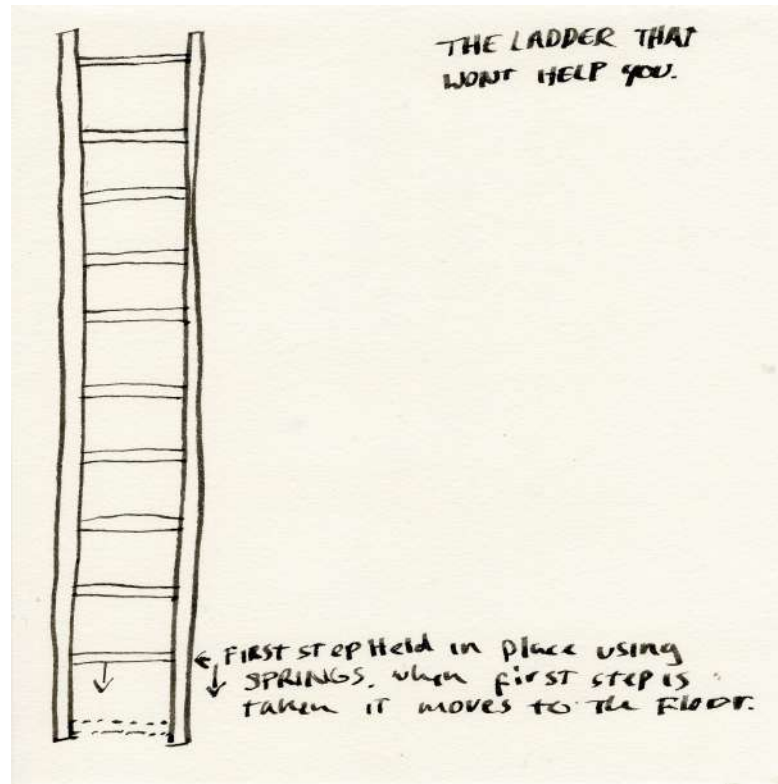 THE LADDER THAT
WONT HELP YOU.
FIRST STEP Held in place using
SPRINGS. when first step is
taken IT moves to The Floor.